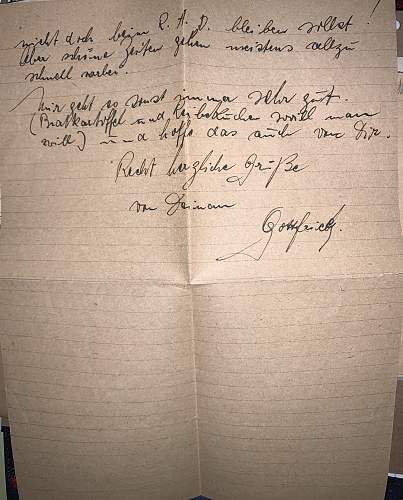 nicht doch beim R. A. D. bleiben sollst!
Aber schöne Zeiten gehen meistens allzu
schnell vorbei.
Mir geht es sonst immer sehr gut.
(Bratkartoffel und Reibekuche soviel man
will) und hoffe das auch von Dir.
Recht herzliche Grüße
von Deinem
Gottfried.